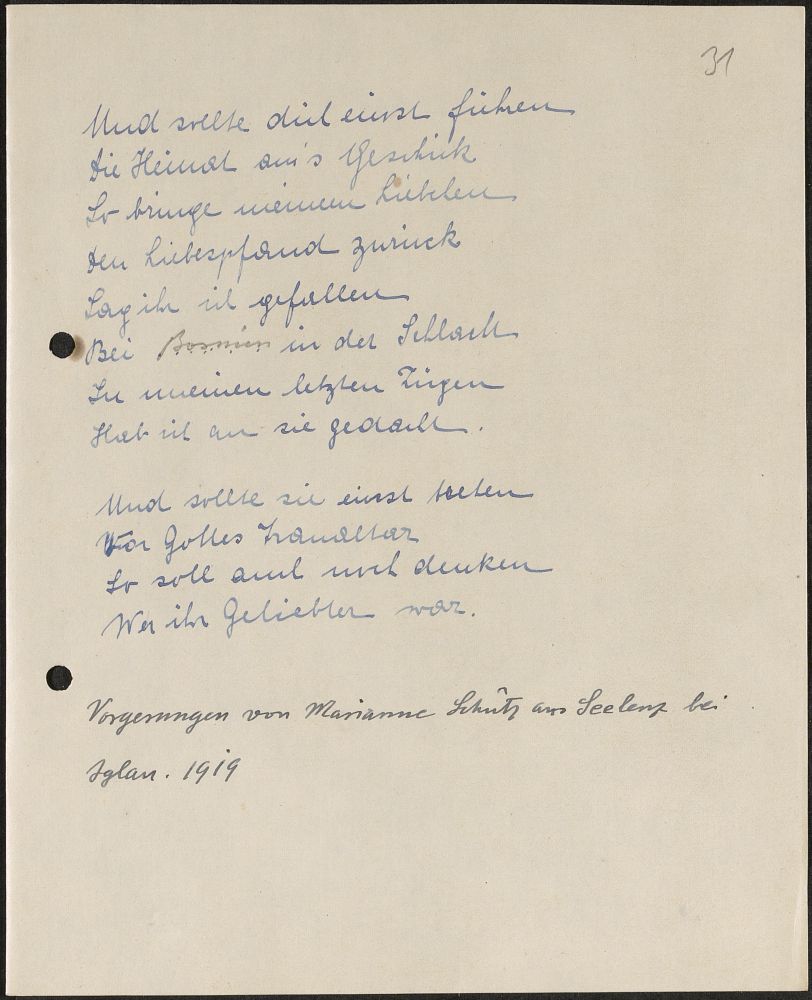 31
Und sollte dich einst führen
Die Heimat an's Geschick
So bringe meinem Liebchen
Den Liebespfand zurück
Sag ihr ich gefallen
Bei Bosnien in der Schlacht
In meinen letzten Zügen
Hab ich an sie gedacht.
Und sollte sie einst treten
Vor Gottes Traualtar
So soll auch noch denken
Wer ihr Geliebter war.
Vorgesungen von Marianne Schütz aus Seelenz bei
Iglau. 1919